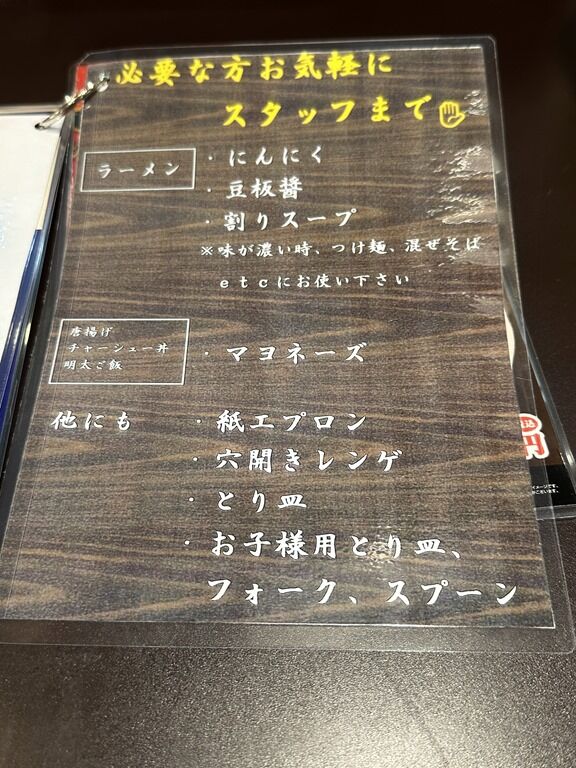 必要な方お気軽に
スタッフまで
ラーメン
・にんにく
・豆板醤
・割りスープ
※味が濃い時、つけ麺、混ぜそば
ｅｔｃにお使い下さい
唐揚げ
チャーシュー丼
明太ご飯
・マヨネーズ
他にも
・紙エプロン
・穴開きレンゲ
・とり皿
・お子様用とり皿、
フォーク、スプーン
円